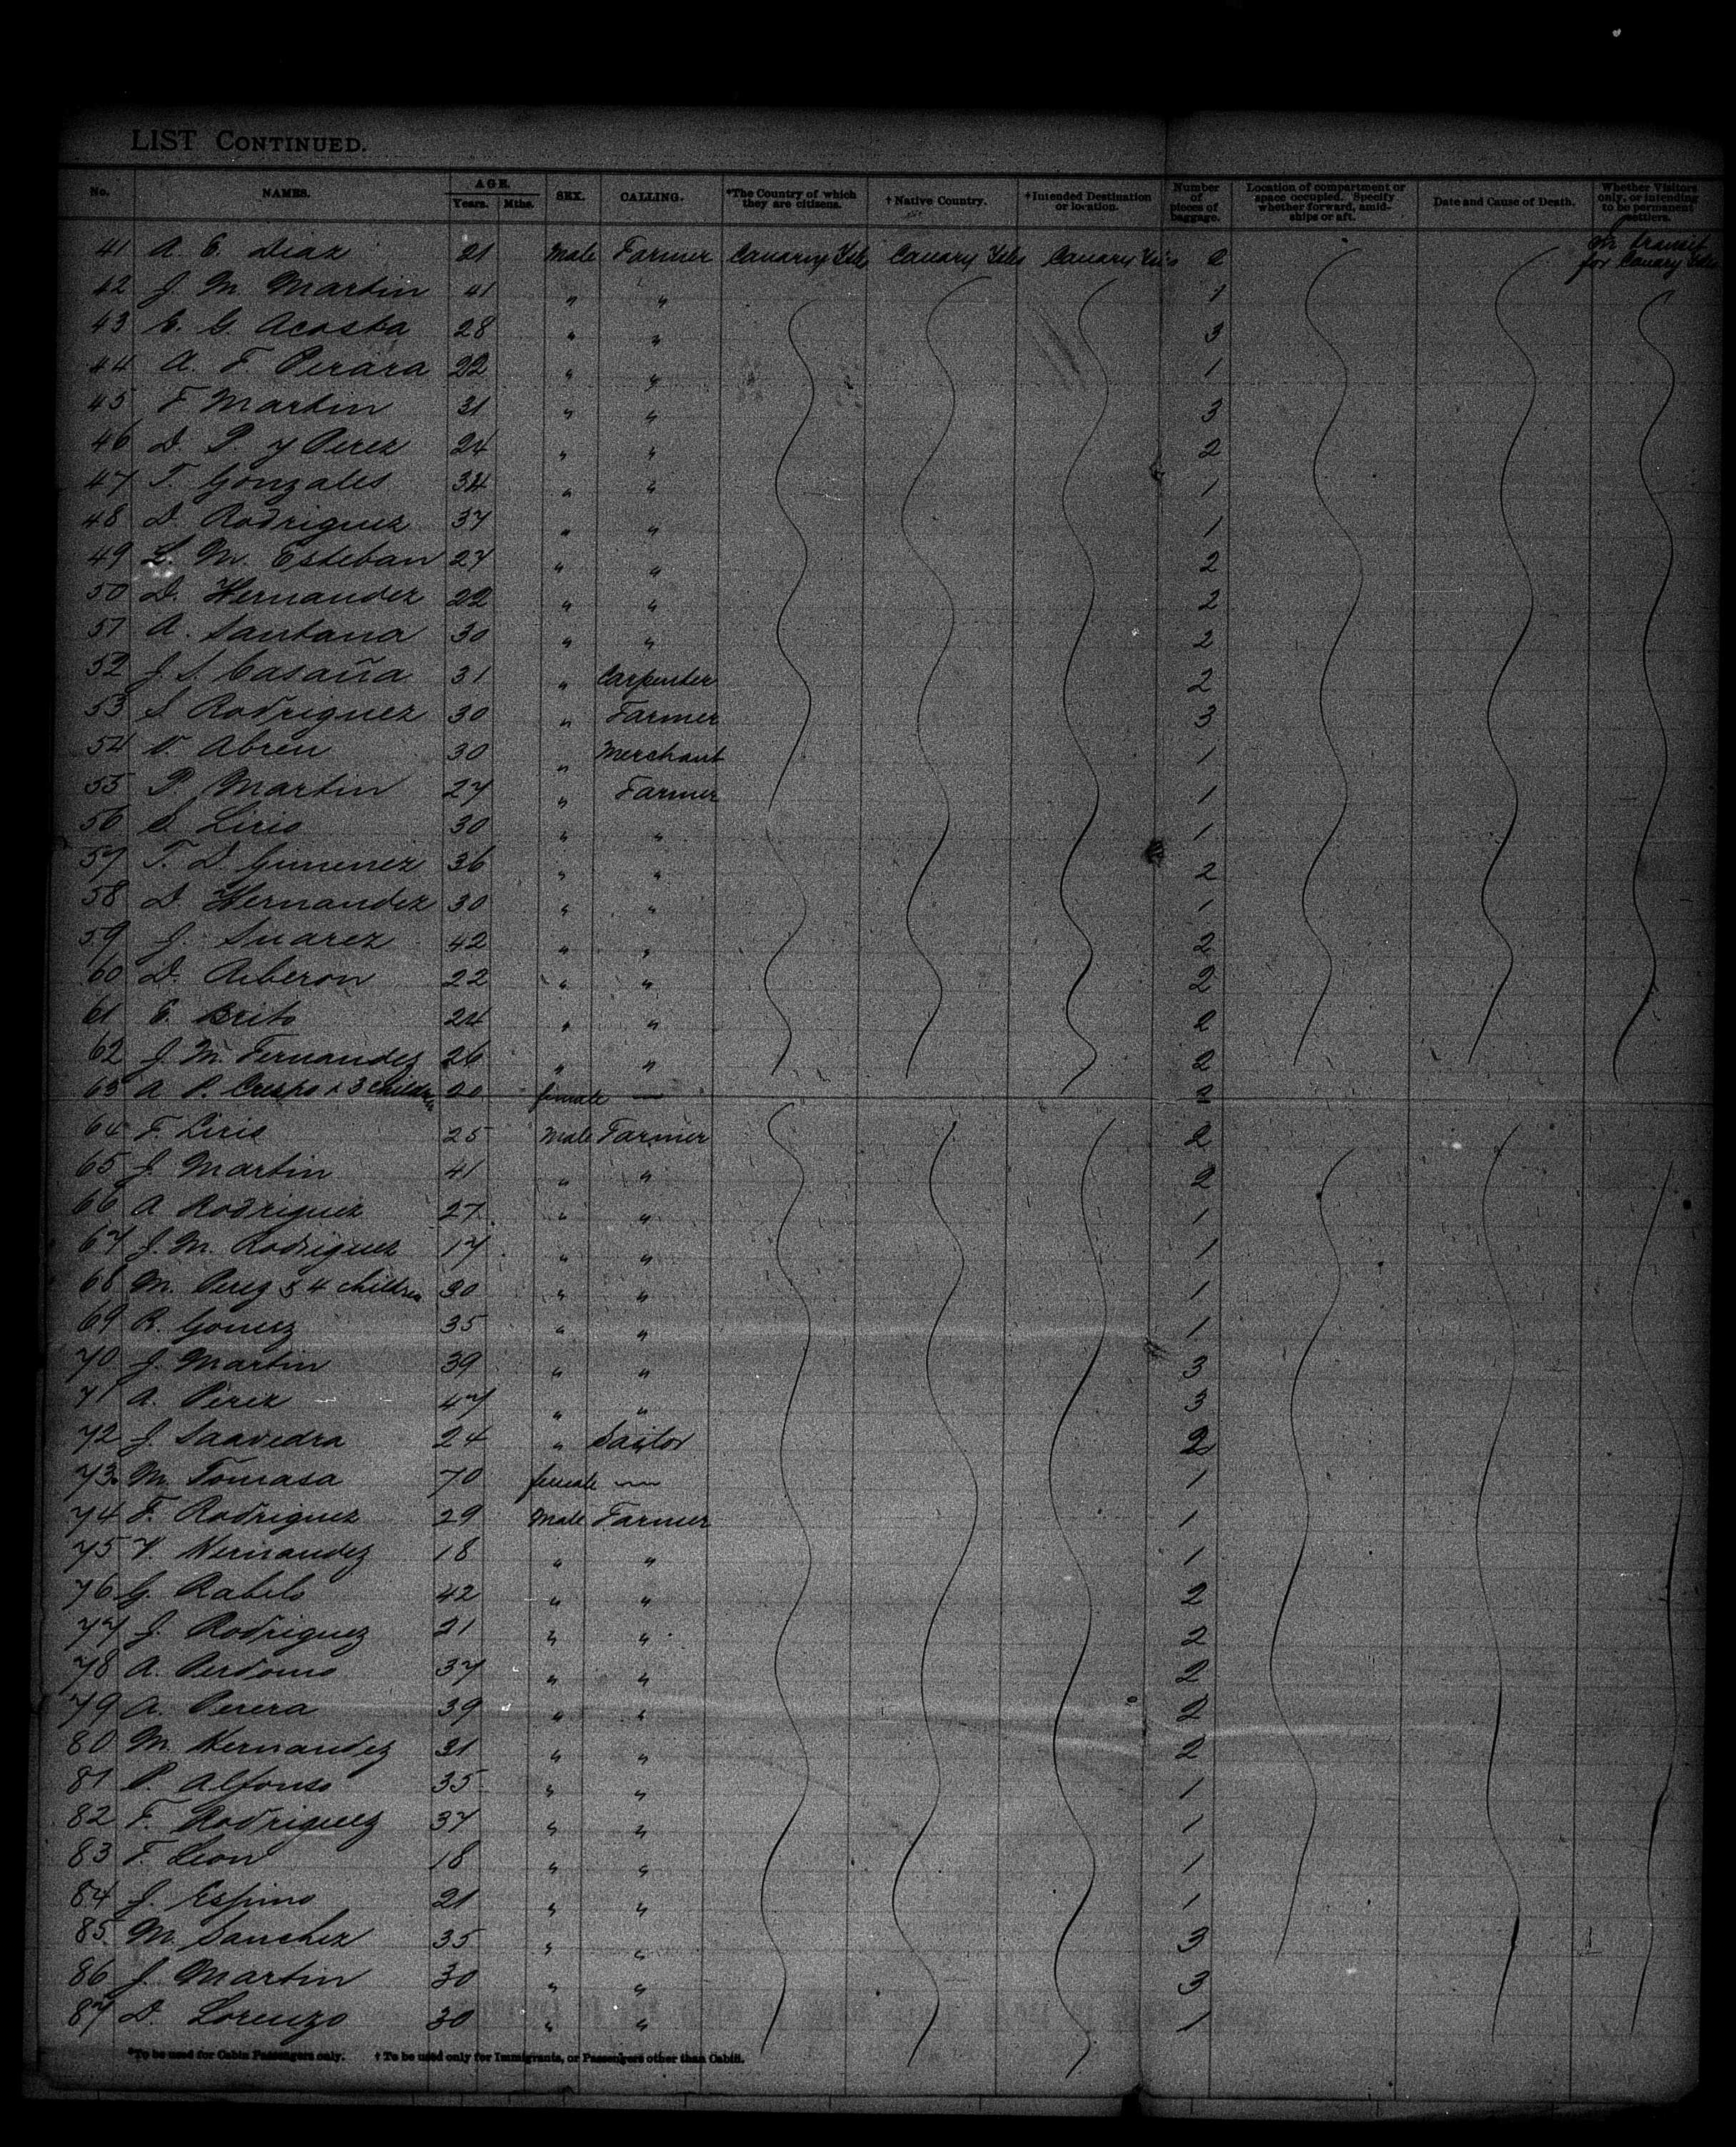 LIST CONTINUED.
No. NAMES. AGE. Years. Mths. SEX. CALLING. *The Country of which they are citizens. † Native Country. †Intended Destination or location. Number of pieces of baggage. Location of compartment or space occupied. Specify whether forward, amidships or aft. Date and Cause of Death. Whether Visitors only, or intending to be permanent settlers.
41 A. C. Diaz 21 Male Farmer Canary Isls Canary Isls Canary Isls 2 in transit for Canary Isls
42 J M Martin 41 " " 1
43 E. G. Acosta 28 " " 3
44 A. F Perara 22 " " 1
45 F Martin 31 " " 3
46 D. P. y Perez 24 " " 2
47 T. Gonzales 34 " " 1
48 D. Rodriguez 37 " " 1
49 L. M. Esteban 27 " " 2
50 D. Hernandez 22 " " 2
51 A. Santana 30 " " 2
52 J S. Casaña 31 " Carpenter 2
53 S Rodriguez 30 " Farmer 3
54 V. Abreu 30 " Merchant 1
55 P Martin 27 " Farmer 1
56 S. Liris 30 " " 1
57 T. D. Gimenez 36 " " 2
58 D. Hernandez 30 " " 1
59 J. Suarez 42 " " 2
60 D. Arberon 22 " " 2
61 E. Brito 24 " " 2
62 J. M. Fernandez 26 " " 2
63 A P. Crespo & 3 children female — 2
64 F. Liris 25 Male Farmer 2
65 J. Martin 41 " " 2
66 A Rodriguez 27 " " 1
67 J. M. Rodriguez 17 " " 1
68 M. Perez & 4 children 30 " " 1
69 R. Gomez 35 " " 1
70 J. Martin 39 " " 3
71 A. Perez 47 " " 3
72 J. Saavedra 24 " Sailor 2
73 M. Tomasa 70 female — 1
74 F. Rodriguez 29 Male Farmer 1
75 V. Hernandez 18 " " 1
76 G. Rabelo 42 " " 2
77 J. Rodriguez 21 " " 2
78 A. Perdomo 37 " " 2
79 A. Perera 39 " " 2
80 M. Hernandez 31 " " 2
81 P. Alfonso 35 " " 1
82 F. Rodriguez 37 " " 1
83 F. Leon 18 " " 1
84 J. Espino 21 " " 1
85 M. Sanchez 35 " " 3
86 J. Martin 30 " " 3
87 D. Lorenzo 30 " " 1
*To be used for Cabin Passengers only. † To be used only for Immigrants, or Passengers other than Cabin.